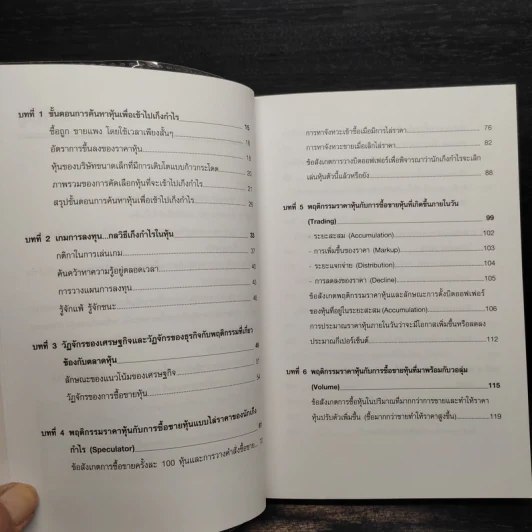 บทที่ 1 ขั้นตอนการค้นหาหุ้นเพื่อเข้าไปเก็งกำไร
ซื้อถูก ขายแพง โดยใช้เวลาเพียงสั้นๆ
อัตราการขึ้นลงของราคาหุ้น
หุ้นของบริษัทขนาดเล็กที่มีการเติบโตแบบก้าวกระโดด 20
ภาพรวมของการคัดเลือกหุ้นที่จะเข้าไปเก็งกำไร 21
สรุปขั้นตอนการค้นหาหุ้นเพื่อเข้าไปเก็งกำไร
บทที่ 2 เกมการลงทุน...กลวิธีเก็งกำไรในหุ้น
กติกาในการเล่นเกม
ค้นคว้าหาความรู้อยู่ตลอดเวลา
การวางแผนการลงทุน
รู้จักแพ้ รู้จักชนะ
บทที่ 3 วัฏจักรของเศรษฐกิจและวัฏจักรของธุรกิจกับพฤติกรรมที่เกี่ยว
ข้องกับตลาดหุ้น
ลักษณะของแนวโน้มของเศรษฐกิจ
วัฏจักรของการซื้อขายหุ้น
บทที่ 4 พฤติกรรมราคาหุ้นกับการซื้อขายหุ้นแบบไล่ราคาของนักเก็ง
กำไร (Speculator)
ข้อสังเกตการซื้อขายครั้งละ 100 หุ้นและการวางคำสั่งซื้อขาย
การหาจังหวะเข้าซื้อเมื่อมีการไล่ราคา 76
การหาจังหวะขายเมื่อเลิกไล่ราคา 82
ข้อสังเกตการวางบิดออฟเฟอร์เพื่อพิจารณาว่านักเก็งกำไรจะเลิก
เล่นหุ้นตัวนี้แล้วหรือยัง 88
บทที่ 5 พฤติกรรมราคาหุ้นกับการซื้อขายหุ้นที่เกิดขึ้นภายในวัน
(Trading) 99
- ระยะสะสม (Accumulation) 102
- การเพิ่มขึ้นของราคา (Markup) 103
- ระยะแจกจ่าย (Distribution) 104
- การลดลงของราคา (Decline) 105
ข้อสังเกตพฤติกรรมราคาหุ้นและลักษณะการตั้งบิดออฟเฟอร์
ของหุ้นที่อยู่ในระยะสะสม (Accumulation) 106
การประมาณราคาหุ้นภายในวันว่าจะมีโอกาสเพิ่มขึ้นหรือลดลง
ประมาณกี่เปอร์เซ็นต์ 112
บทที่ 6 พฤติกรรมราคาหุ้นกับการซื้อขายหุ้นที่มาพร้อมกับวอลุ่ม
(Volume) 115
ข้อสังเกตการซื้อหุ้นในปริมาณที่มากกว่าการขายและทำให้ราคา
หุ้นปรับตัวเพิ่มขึ้น (ซื้อมากกว่าขายทำให้ราคาสูงขึ้น) 119